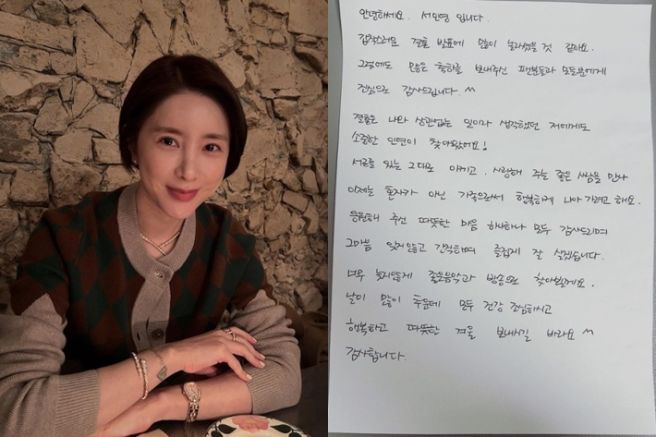 안녕하세요. 서인영 입니다.
갑작스러운 결혼 발표에 많이 놀라셨을 것 같아요.
그럼에도 많은 축하를 보내주신 팬분들과 모든분께
진심으로 감사드립니다 ^^
결혼은 나와 상관없는 일이라 생각했던 저에게도
소중한 인연이 찾아왔어요!
서로를 있는 그대로 아끼고, 사랑해 주는 좋은 사람을 만나
이제는 혼자가 아닌 가족으로써 행복하게 나아가려고 해요.
응원해 주신 따뜻한 마음 하나하나 모두 감사드리며
그마음 잊지않고 간직하며 즐겁게 잘 살겠습니다.
너무 늦지않게 좋은음악과 방송으로 찾아뵐게요.
날이 많이 추운데 모두 건강 조심하시고
행복하고 따뜻한 겨울 보내시길 바라요 ^^
감사합니다.